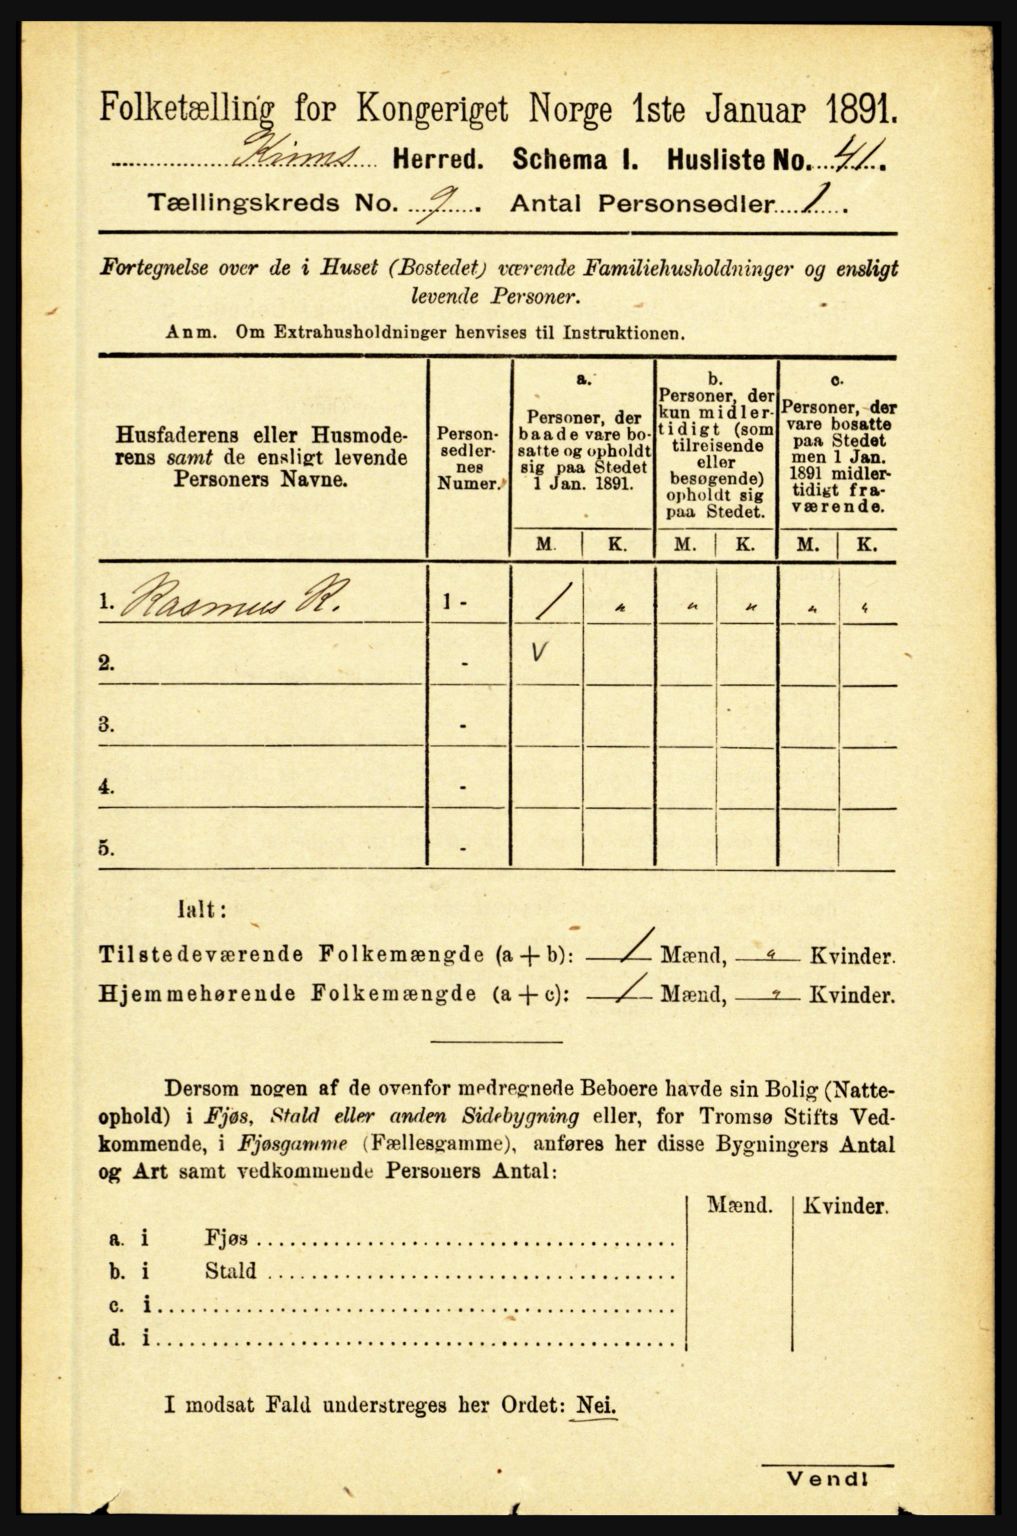 Folketælling for Kongeriget Norge 1ste Januar 1891.
Kinns Herred. Schema I. Husliste No. 41.
Tællingskreds No. 9. Antal Personsedler 1.
Fortegnelse over de i Huset (Bostedet) værende Familiehusholdninger og ensligt
levende Personer.
Anm. Om Extrahusholdninger henvises til Instruktionen.
Husfaderens eller Husmode-
rens samt de ensligt levende
Personers Navne.
Person-
sedler-
nes
Numer.
a.
Personer, der
baade vare bo-
satte og opholdt
sig paa Stedet
1 Jan. 1891.
b.
Personer, der
kun midler-
tidigt (som
tilreisende
eller
besøgende)
opholdt sig
paa Stedet.
c.
Personer, der
vare bosatte
paa Stedet
men 1 Jan.
1891 midler-
tidigt fra-
værende.
M. K. M. K. M. K.
1. Rasmus R. 1 - 1 " " " " "
2. - V
3. -
4. -
5. -
Ialt:
Tilstedeværende Folkemængde (a + b): 1 Mænd, " Kvinder.
Hjemmehørende Folkemængde (a + c): 1 Mænd, " Kvinder.
Dersom nogen af de ovenfor medregnede Beboere havde sin Bolig (Natte-
ophold) i Fjøs, Stald eller anden Sidebygning eller, for Tromsø Stifts Ved-
kommende, i Fjøsgamme (Fællesgamme), anføres her disse Bygningers Antal
og Art samt vedkommende Personers Antal:
Mænd. Kvinder.
a. i Fjøs
b. i Stald
c. i
d. i
I modsat Fald understreges her Ordet: Nei.
Vend!